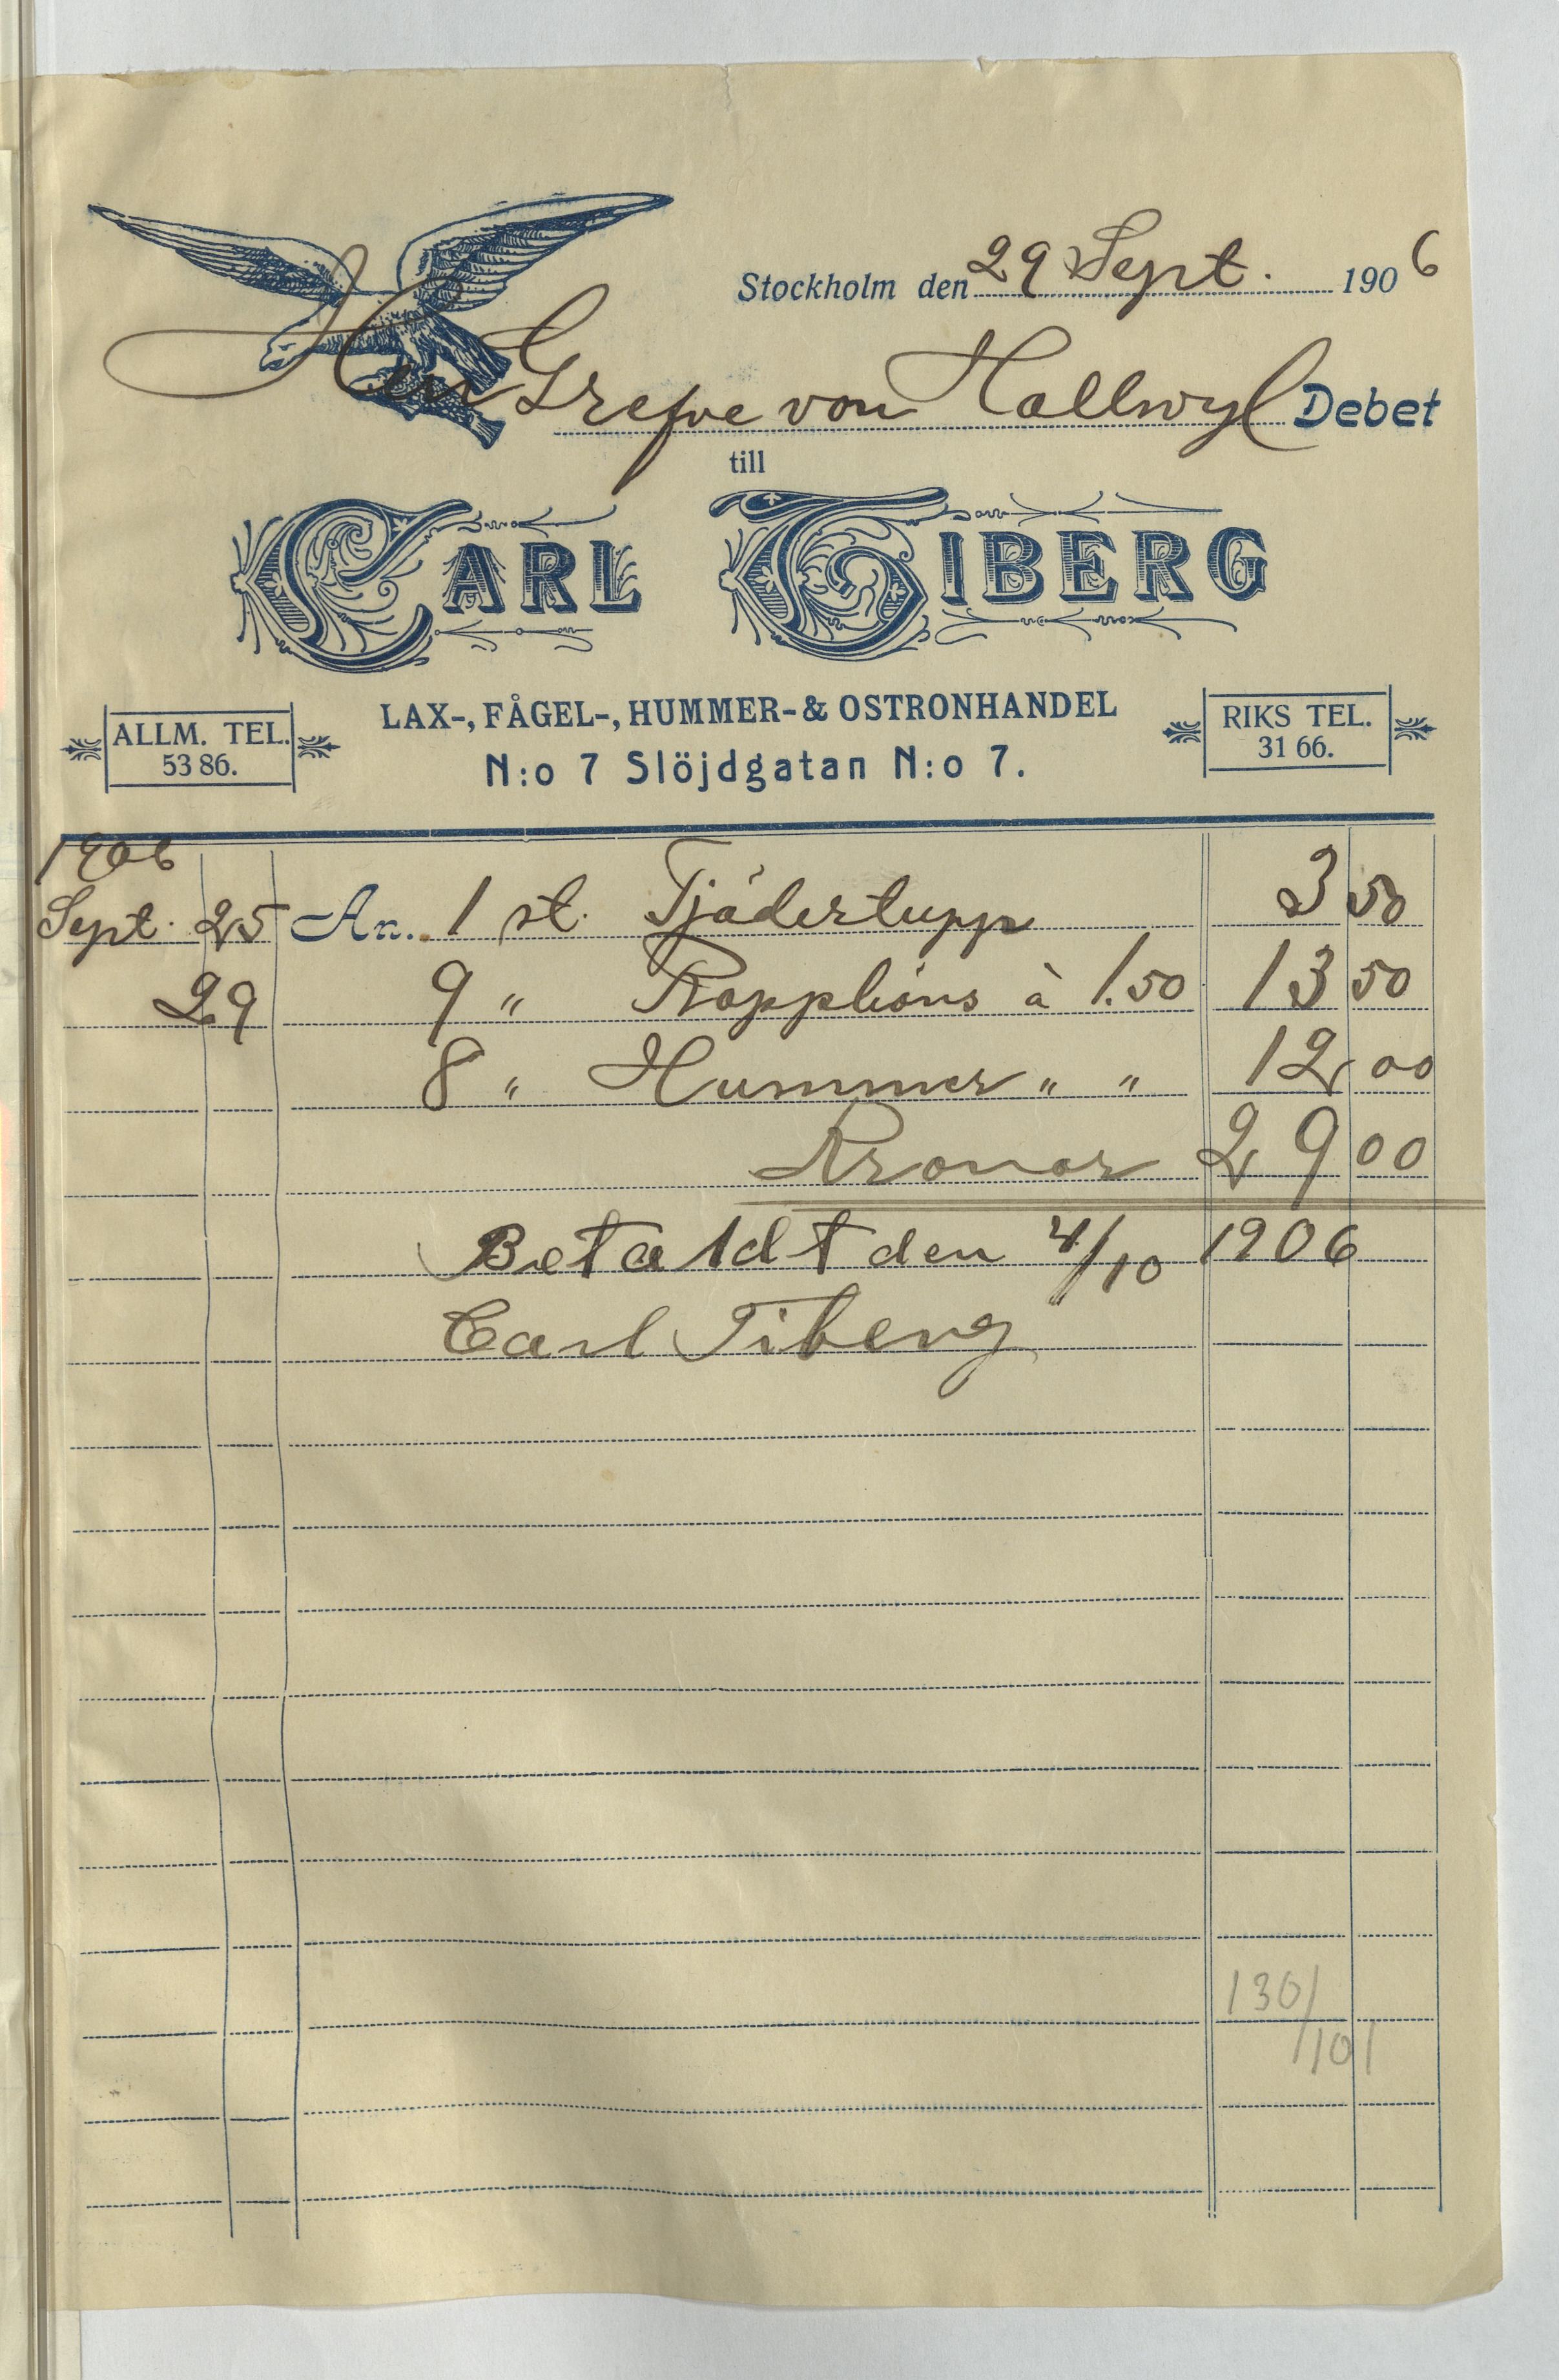 Stockholm den 29 Sept. 1906
Herr Grefve von Hallwyl Debet
till
CARL TIBERG
LAX-, FÅGEL-, HUMMER- & OSTRONHANDEL
N:o 7 Slöjdgatan N:o 7.
ALLM. TEL.
53 86.
RIKS TEL.
31 66.
1906
Sept. 25 An. 1 st. Tjädertupp 3 50
29 9 " Rapphöns à 1.50 13 50
8 " Hummer " " 12 00
Kronor 29 00
Betaldt den 4/10 1906
Carl Tiberg
130/
/101